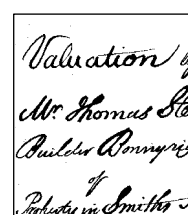 Valuation
Mr. Thomas Ste
Builder Bonnyri
of
Property in Smiths